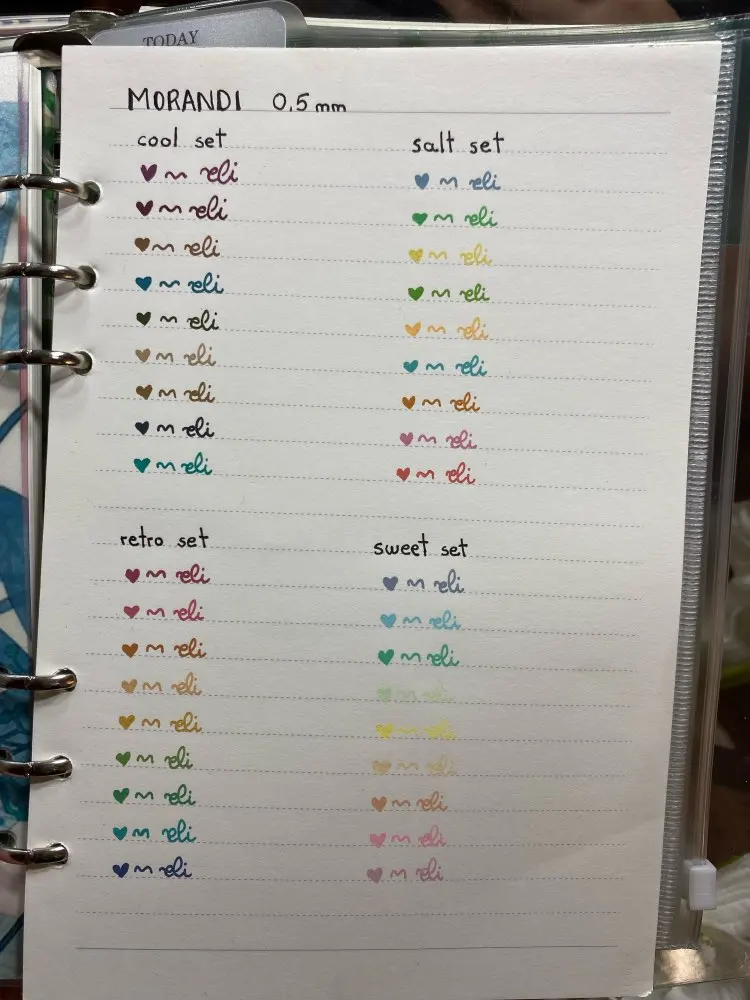 TODAY
MORANDI 0,5 mm
cool set
♥ ~ eli
♥ ~ eli
♥ ~ eli
♥ ~ eli
♥ ~ eli
♥ ~ eli
♥ ~ eli
♥ ~ eli
♥ ~ eli
salt set
♥ ~ eli
♥ ~ eli
♥ ~ eli
♥ ~ eli
♥ ~ eli
♥ ~ eli
♥ ~ eli
♥ ~ eli
♥ ~ eli
retro set
♥ ~ eli
♥ ~ eli
♥ ~ eli
♥ ~ eli
♥ ~ eli
♥ ~ eli
♥ ~ eli
♥ ~ eli
♥ ~ eli
sweet set
♥ ~ eli
♥ ~ eli
♥ ~ eli
♥ ~ eli
♥ ~ eli
♥ ~ eli
♥ ~ eli
♥ ~ eli
♥ ~ eli